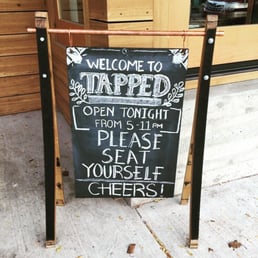 WELCOME TO
TAPPED
OPEN TONIGHT
FROM 5-11PM
PLEASE
SEAT
YOURSELF
CHEERS!